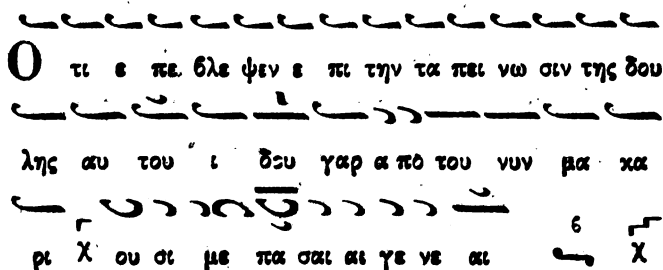 Ο τι ε πε βλε ψεν ε πι την τα πει νω σιν της δου
λης αυ του ι δου γαρ α πο του νυν μα κα
ρι χ ου σι με πα σαι αι γε νε αι χ